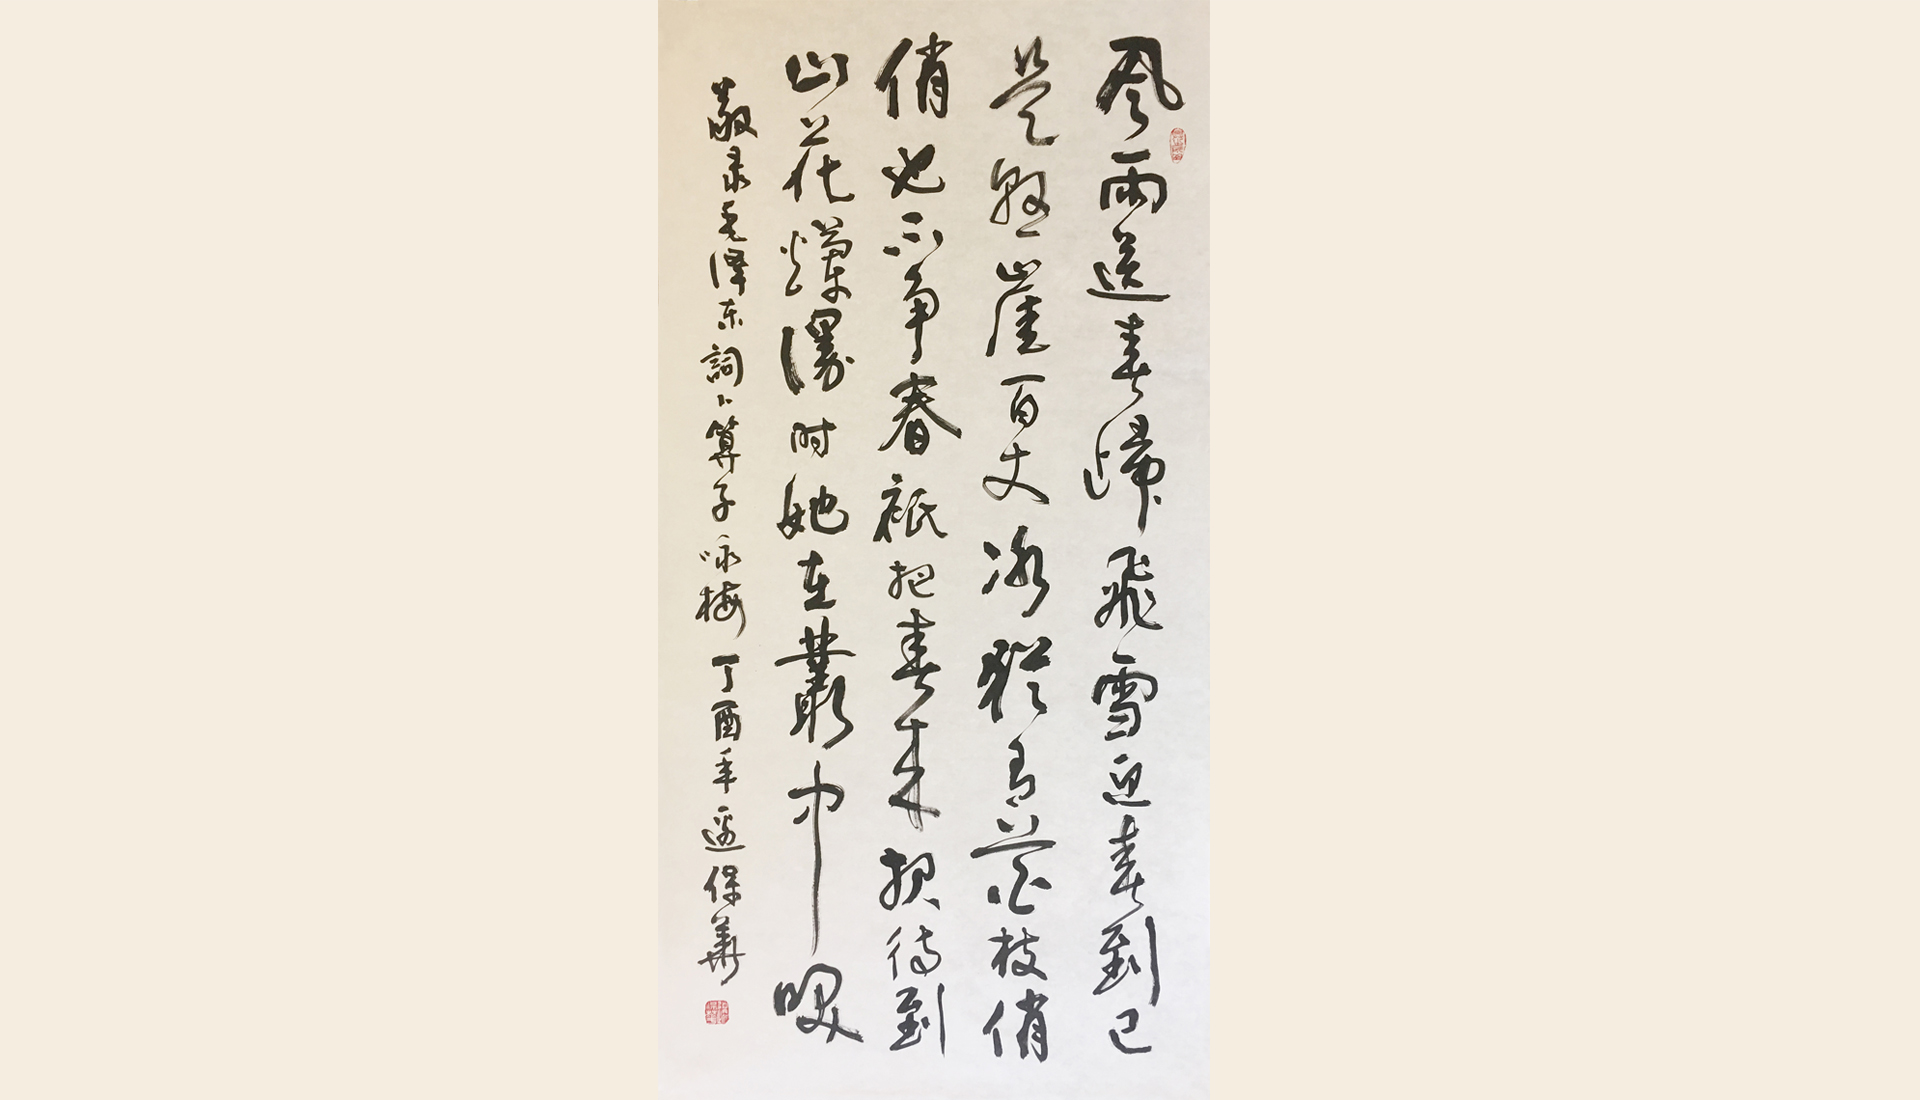 风雨送春歸飛雪迎春到已
是懸崖百丈冰猶有花枝俏
俏也不争春祇把春来报待到
山花爛漫时她在叢中咲
敬录毛泽东詞卜算子咏梅 丁酉年邊保華